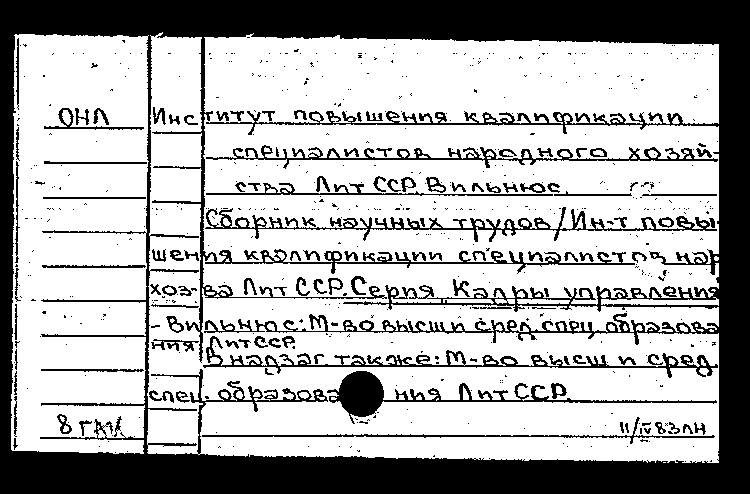 ОНЛ Институт повышения квалификации
специалистов народного хозяй-
ства Лит ССР. Вильнюс.
Сборник научных трудов/Ин-т повы-
шения квалификации специалистов нар
хоз-ва Лит ССР. Серия „Кадры управления
- Вильнюс: М-во высш и сред. спец. образова
ния ЛитССР.
В надзаг также: М-во высш и сред.
спец. образования ЛитССР.
8 11/IV 83 ЛН